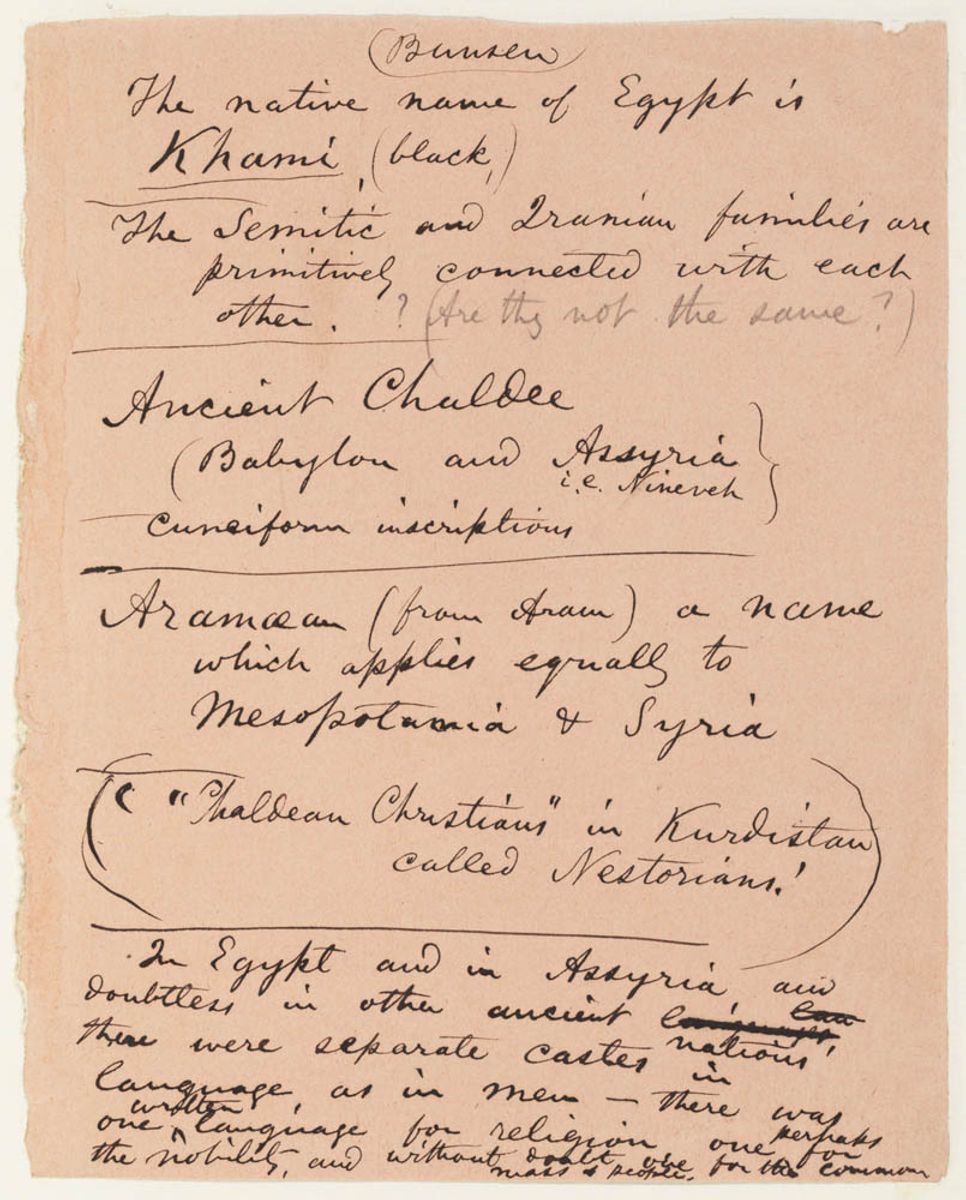 (Bunsen)
The native name of Egypt is
Khami, (black,)
The Semitic and Iranian families are
primitively connected with each
other. ? (Are they not the same?)
Ancient Chaldee
(Babylon and Assyria
i.e. Nineveh }
cuneiform inscriptions
Aramæan (from Aram) a name
which applies equally to
Mesopotamia & Syria
( "Chaldean Christians" in Kurdistan
called Nestorians! )
In Egypt and in Assyria, and
doubtless in other ancient languages lan
nations,
there were separate castes in
language, as in men — there was
one written language for religion one perhaps for
the nobility, and without doubt one for the common
mass of people.